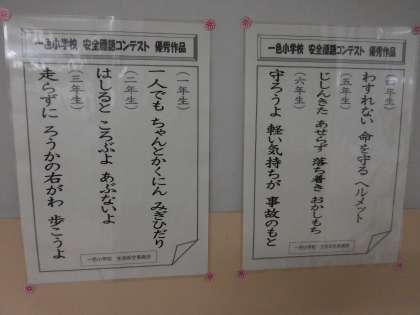 一色小学校 安全標語コンテスト 優秀作品
(一年生)
一人でも ちゃんとかくにん みぎひだり
(二年生)
はしると ころぶよ あぶないよ
(三年生)
走らずに ろうかの右がわ 歩こうよ
一色小学校 安全標語コンテスト 優秀作品
年生)
わすれない 命を守る ヘルメット
(五年生)
じしんきた あせらず 落ち着き おかしもち
(六年生)
守ろうよ 軽い気持ちが 事故のもと